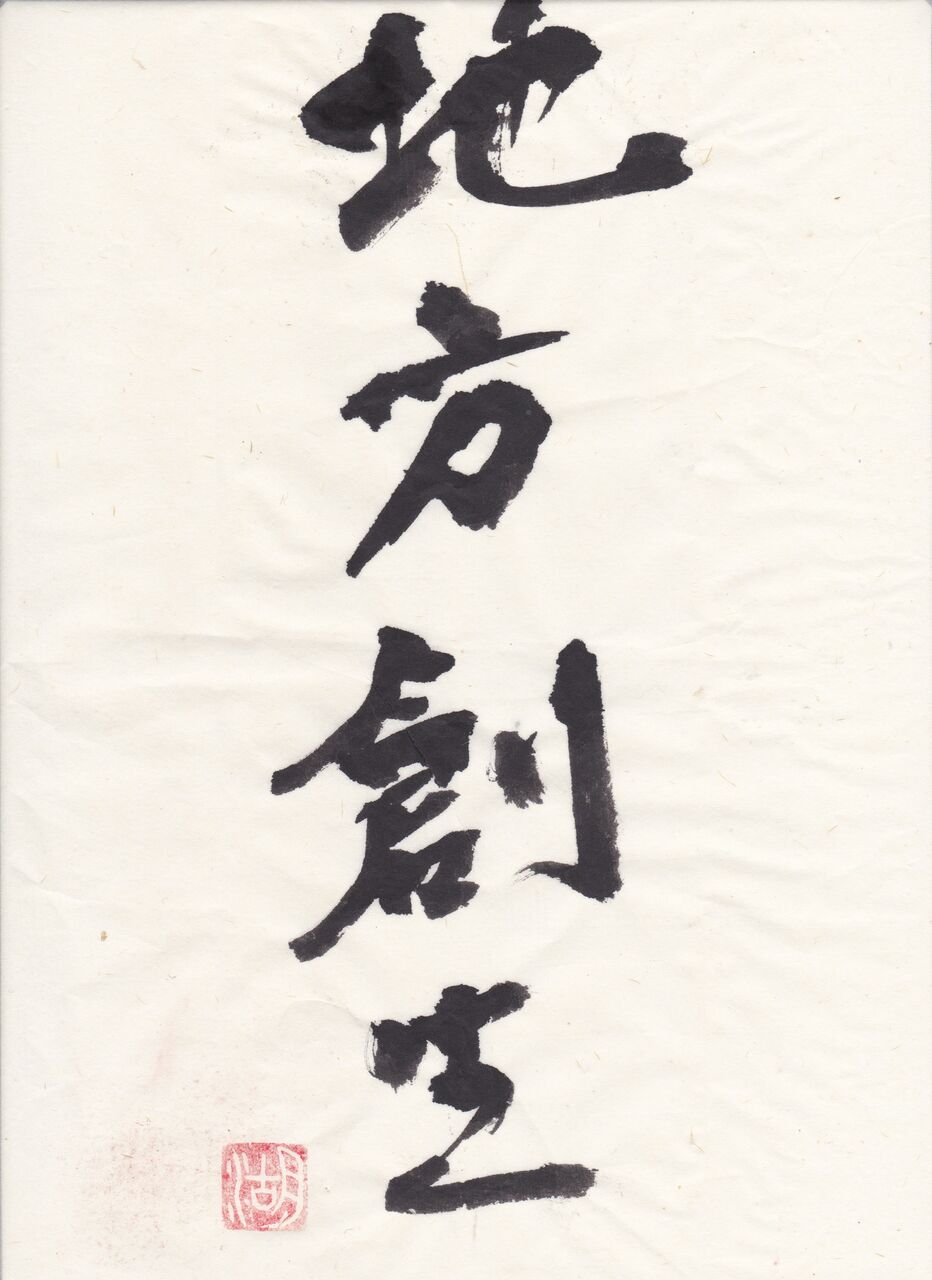 地方創生
湖